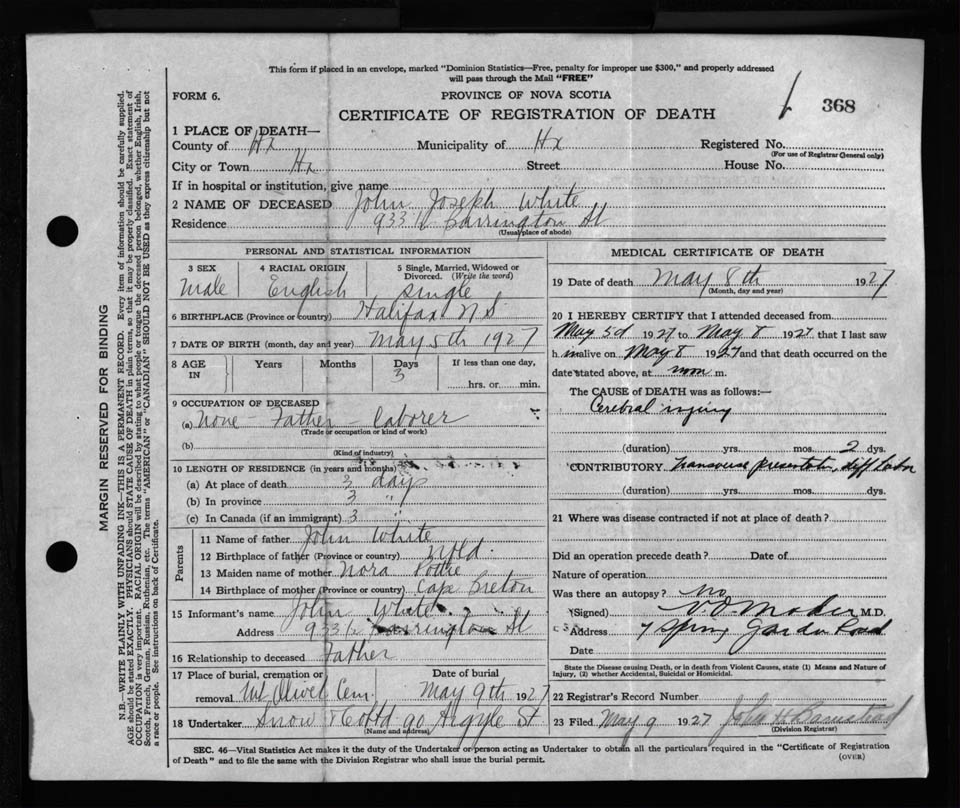 This form if placed in an envelope, marked "Dominion Statistics—Free, penalty for improper use $300," and properly addressed
will pass through the Mail "FREE"
FORM 6.
PROVINCE OF NOVA SCOTIA
368
CERTIFICATE OF REGISTRATION OF DEATH
1 PLACE OF DEATH—
County of Hx Municipality of Hx Registered No.
(For use of Registrar General only)
City or Town Hx Street House No.
If in hospital or institution, give name
2 NAME OF DECEASED John Joseph White
Residence 933½ Barrington St
(Usual place of abode)
PERSONAL AND STATISTICAL INFORMATION
3 SEX 4 RACIAL ORIGIN 5 Single, Married, Widowed or
Divorced. (Write the word)
Male English Single
6 BIRTHPLACE (Province or country) Halifax N S
7 DATE OF BIRTH (month, day and year) May 5th 1927
8 AGE Years Months Days If less than one day,
IN 3 hrs. or min.
9 OCCUPATION OF DECEASED
(a) None - Father - Laborer
(Trade or occupation or kind of work)
(b)
(Kind of industry)
10 LENGTH OF RESIDENCE (in years and months)
(a) At place of death 3 days
(b) In province 3 "
(c) In Canada (if an immigrant) 3 "
Parents
11 Name of father John White
12 Birthplace of father (Province or country) Nfld.
13 Maiden name of mother Nora Pottie
14 Birthplace of mother (Province or country) Cape Breton
15 Informant's name John White
Address 933½ Barrington St
16 Relationship to deceased Father
17 Place of burial, cremation or Date of burial
removal Mt Olivet Cem. May 9th 1927
18 Undertaker Snow & Co Ltd 90 Argyle St
(Name and address)
MEDICAL CERTIFICATE OF DEATH
19 Date of death May 8th 1927
(Month, day and year)
20 I HEREBY CERTIFY that I attended deceased from
May 5th 1927 to May 8 1927 that I last saw
h im alive on May 8 1927 and that death occurred on the
date stated above, at noon m.
The CAUSE of DEATH was as follows:—
Cerebral injury
(duration) yrs. mos. 2 dys.
CONTRIBUTORY Transverse presentation, diff Labor
(duration) yrs. mos. dys.
21 Where was disease contracted if not at place of death?
Did an operation precede death? Date of
Nature of operation
Was there an autopsy? no
(Signed) V D Mader M.D.
Address 7 Spring Garden Road
Date
State the Disease causing Death, or in death from Violent Causes, state (1) Means and Nature of
Injury, (2) whether Accidental, Suicidal or Homicidal.
22 Registrar's Record Number
23 Filed May 9 1927 John
(Division Registrar)
SEC. 46—Vital Statistics Act makes it the duty of the Undertaker or person acting as Undertaker to obtain all the particulars required in the "Certificate of Registration
of Death" and to file the same with the Division Registrar who shall issue the burial permit.
(OVER)
MARGIN RESERVED FOR BINDING
N.B.—WRITE PLAINLY WITH UNFADING INK—THIS IS A PERMANENT RECORD. Every item of information should be carefully supplied.
AGE should be stated EXACTLY. PHYSICIANS should STATE CAUSE OF DEATH in plain terms, so that it may be properly classified. Exact statement of
OCCUPATION is very important. RACIAL ORIGIN will be described by stating to what people or tongue the deceased person belonged, whether English, Irish,
Scotch, French, German, Russian, Ruthenian, etc. The terms "AMERICAN" or "CANADIAN" SHOULD NOT BE USED as they express citizenship but not
a race or people. See instructions on back of Certificate.